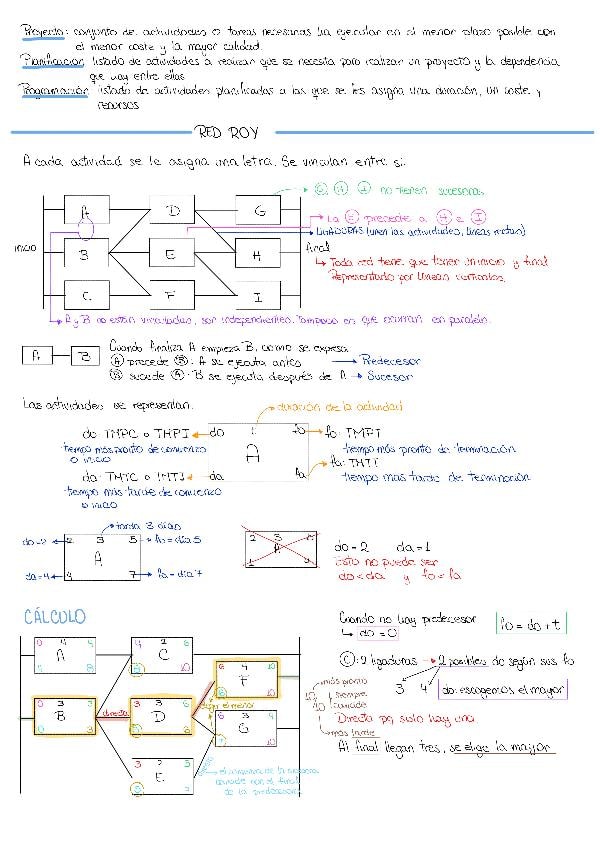 Proyecto: conjunto de actividades o tareas necesarias para ejecutar en el menor plazo posible con
el menor coste y la mayor calidad.
Planificación: listado de actividades a realizar que se necesita para realizar un proyecto y la dependencia
que hay entre ellas
Programación: listado de actividades planificadas a las que se les asigna una duración, un coste y
recursos
RED ROY
A cada actividad se le asigna una letra. Se vinculan entre sí.
G, H, I no tienen sucesoras.
A D G
La E precede a H e I
LIGADURAS (unen las actividades, líneas rectas)
INICIO B E H final
Toda red tiene que tener un inicio y final
Representado por líneas verticales.
C F I
A y B no están vinculadas, son independientes. Tampoco es que ocurran en paralelo.
A B
Cuando finaliza A empieza B, como se expresa
A precede B: A se ejecuta antes → Predecesor
B sucede A: B se ejecuta después de A → Sucesor
Las actividades se representan:
duración de la actividad
do: TMPC o TMPI ← do t fo → fo: TMPT
tiempo más pronto de comienzo
o inicio
tiempo más pronto de terminación
A
da: TMTC o TMTI ← da fa → fa: TMTT
tiempo más tarde de comienzo
o inicio
tiempo más tarde de terminación
tarda 3 días
do=2 ← 2 3 5 → fo = día 5
A
da=4 ← 4 7 → fa = día 7
2 3
A
do = 2 da = 1
Esto no puede ser
do < da y fo = fa
CÁLCULO
Cuando no hay predecesor
→ do = 0
fo = do + t
0 4 4
A
4 2 6
C
8 10
C: 2 ligaduras → 2 posibles do según sus fo
3 4
do: escogemos el mayor
F
10
más pronto
siempre
cuadado
10
10
más tarde
0 3 3
B
0 3
directa
3 3 6
D
6
elijo el menor
6 3
G
10
Directa pq solo hay una
Al final llegan tres, se elige la mayor
3 2
E
el comienzo de la sucesora
coincide con el final
de la predecesora